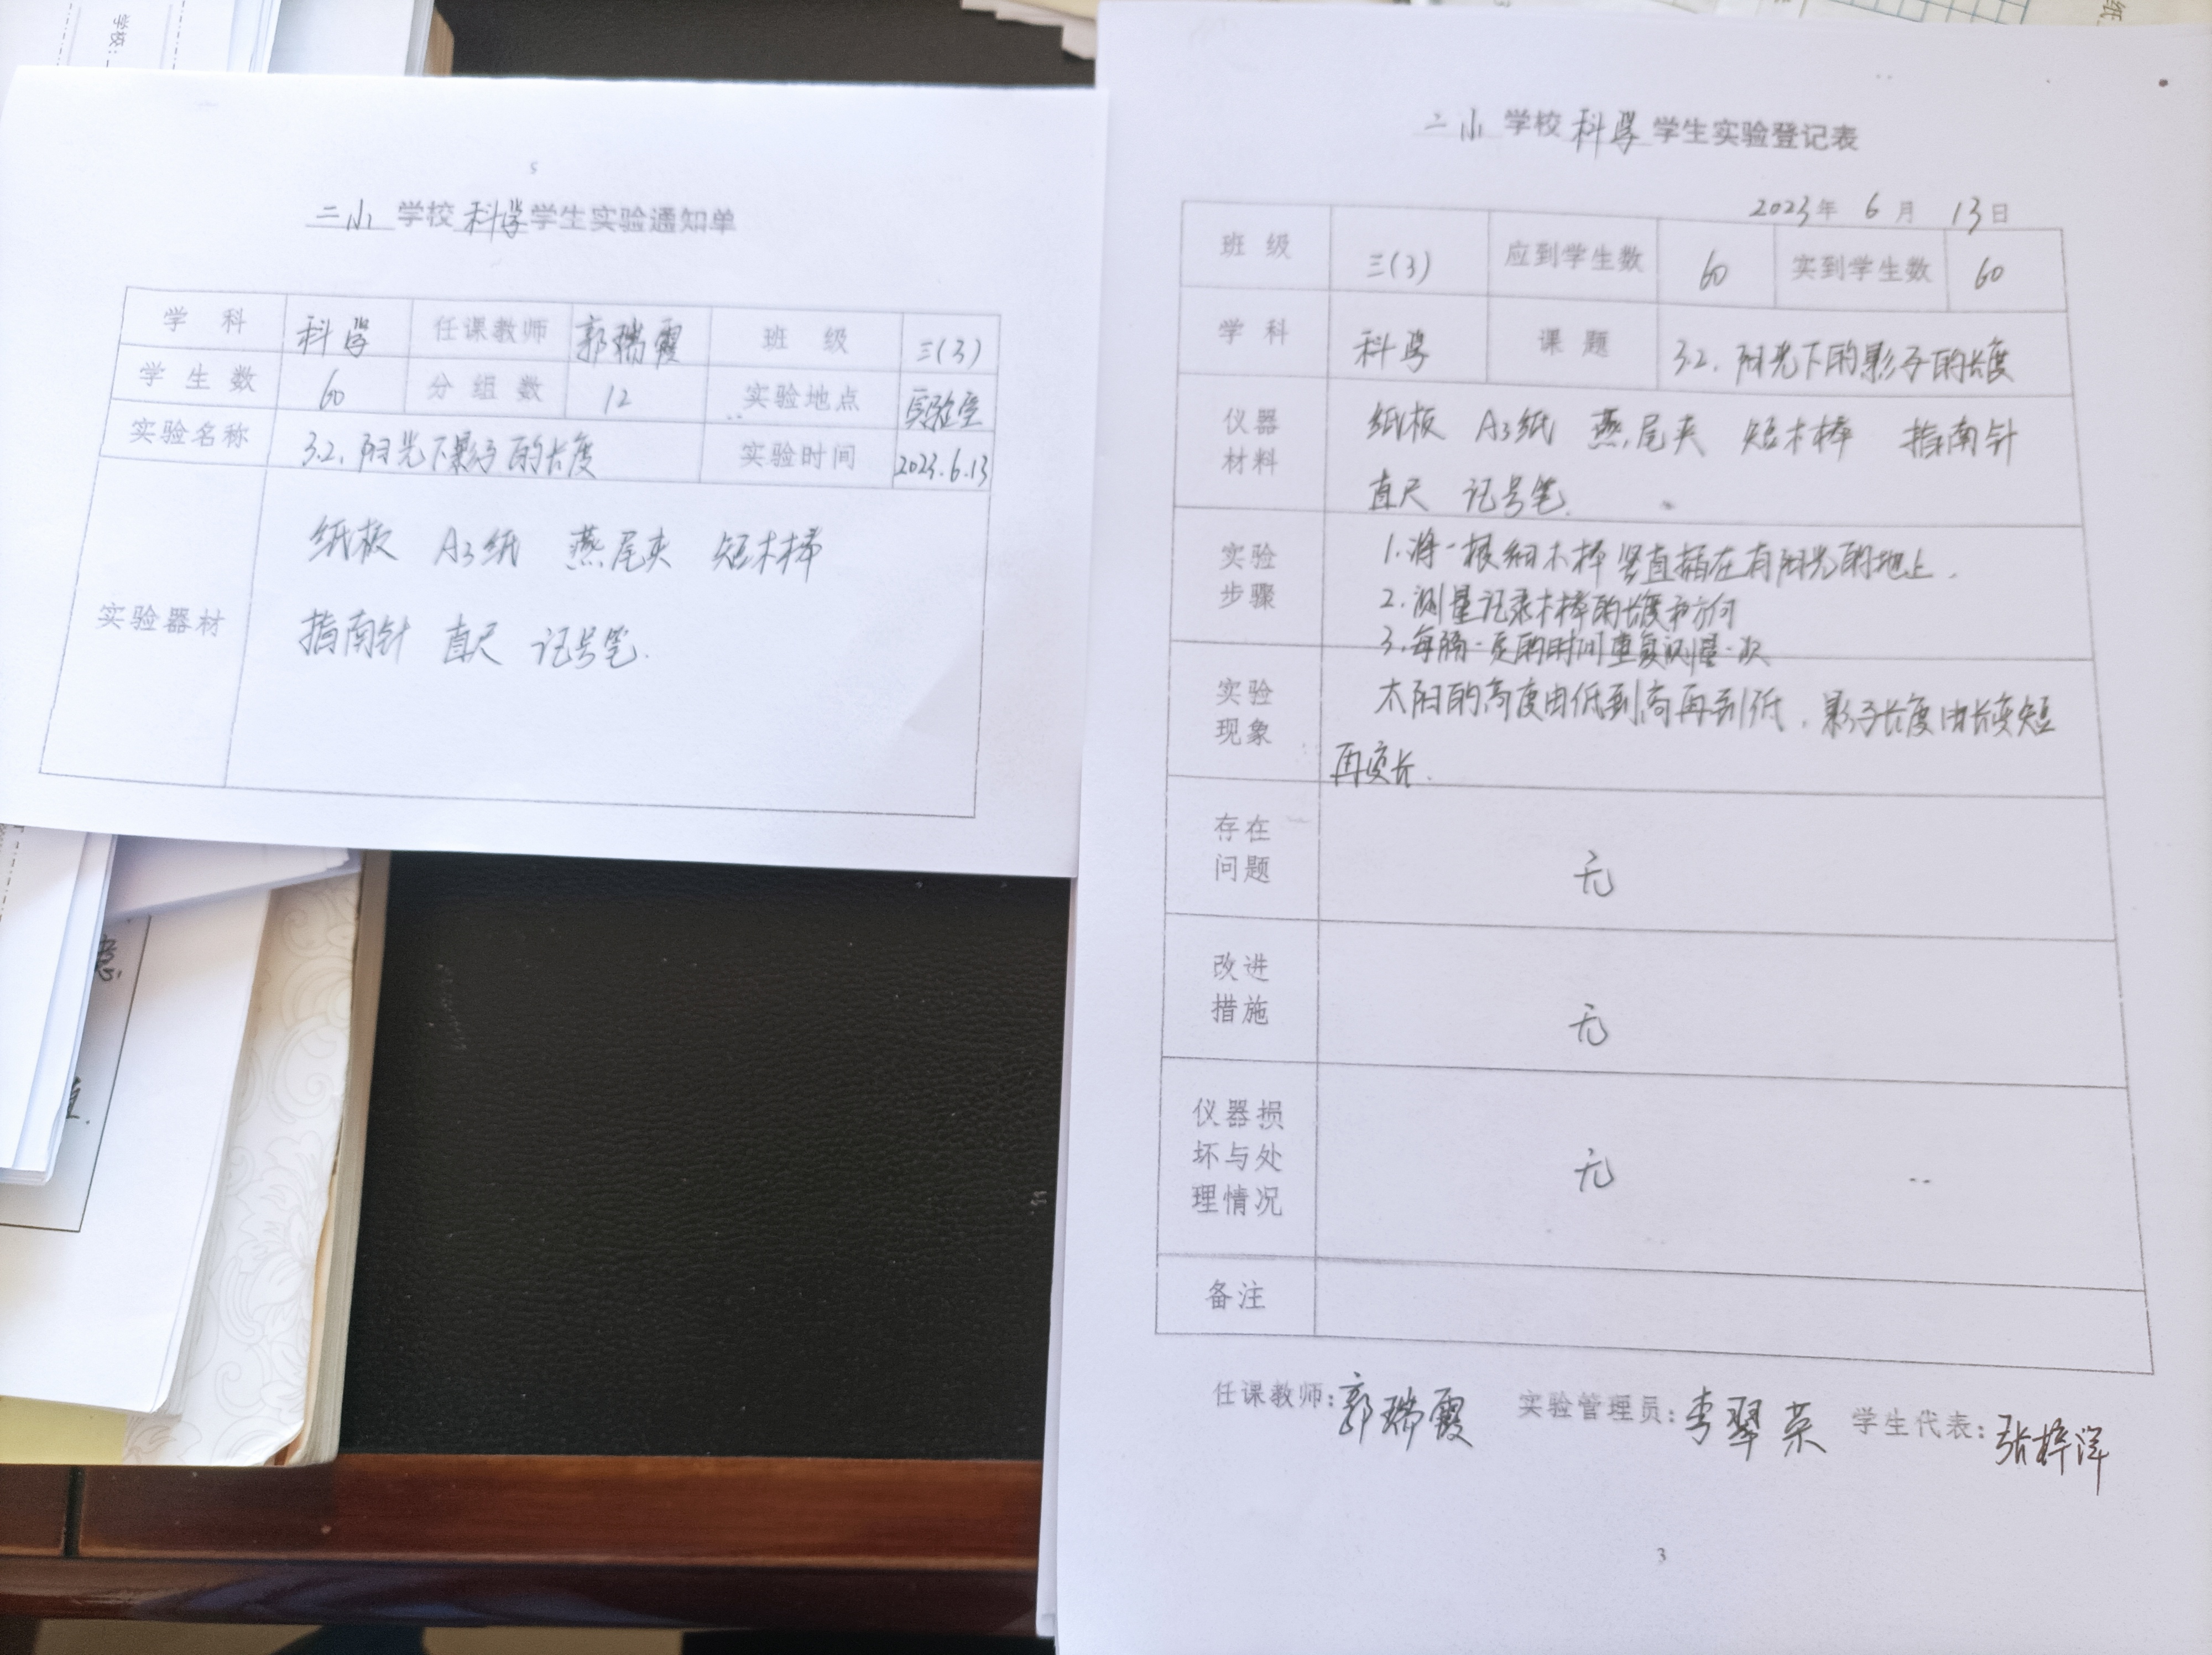 学校:
5
二小 学校 科学 学生实验通知单
学 科 科学 任课教师 郭瑞霞 班 级 三(3)
学 生 数 60 分 组 数 12 实验地点 实验室
实验名称 3.2.阳光下影子的长度 实验时间 2023.6.13
实验器材
纸板 A3纸 燕尾夹 短木棒
指南针 直尺 记号笔.
二小 学校 科学 学生实验登记表
2023年 6 月 13日
班 级 三(3) 应到学生数 60 实到学生数 60
学 科 科学 课 题 3.2.阳光下的影子的长度
仪器
材料
纸板 A3纸 燕尾夹 短木棒 指南针
直尺 记号笔.
实验
步骤
1.将一根细木棒竖直插在有阳光的地上.
2.测量记录木棒的长度和方向
3.每隔一定的时间重复测量一次
实验
现象
太阳的高度由低到高再到低,影子长度由长变短
再变长.
存在
问题
无
改进
措施
无
仪器损
坏与处
理情况
无
备注
任课教师:郭瑞霞 实验管理员:李翠荣 学生代表:张梓洋
3